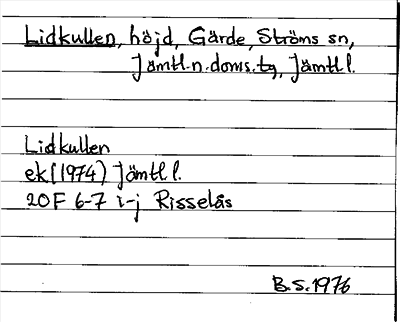 Lidkullen, höjd, Gärde, Ströms sn,
Jämtl.n.doms.tg, Jämtl.l.
Lidkullen
ek(1974) Jämtl.l.
20F 6-7 i-j Risselås
B.S.1976